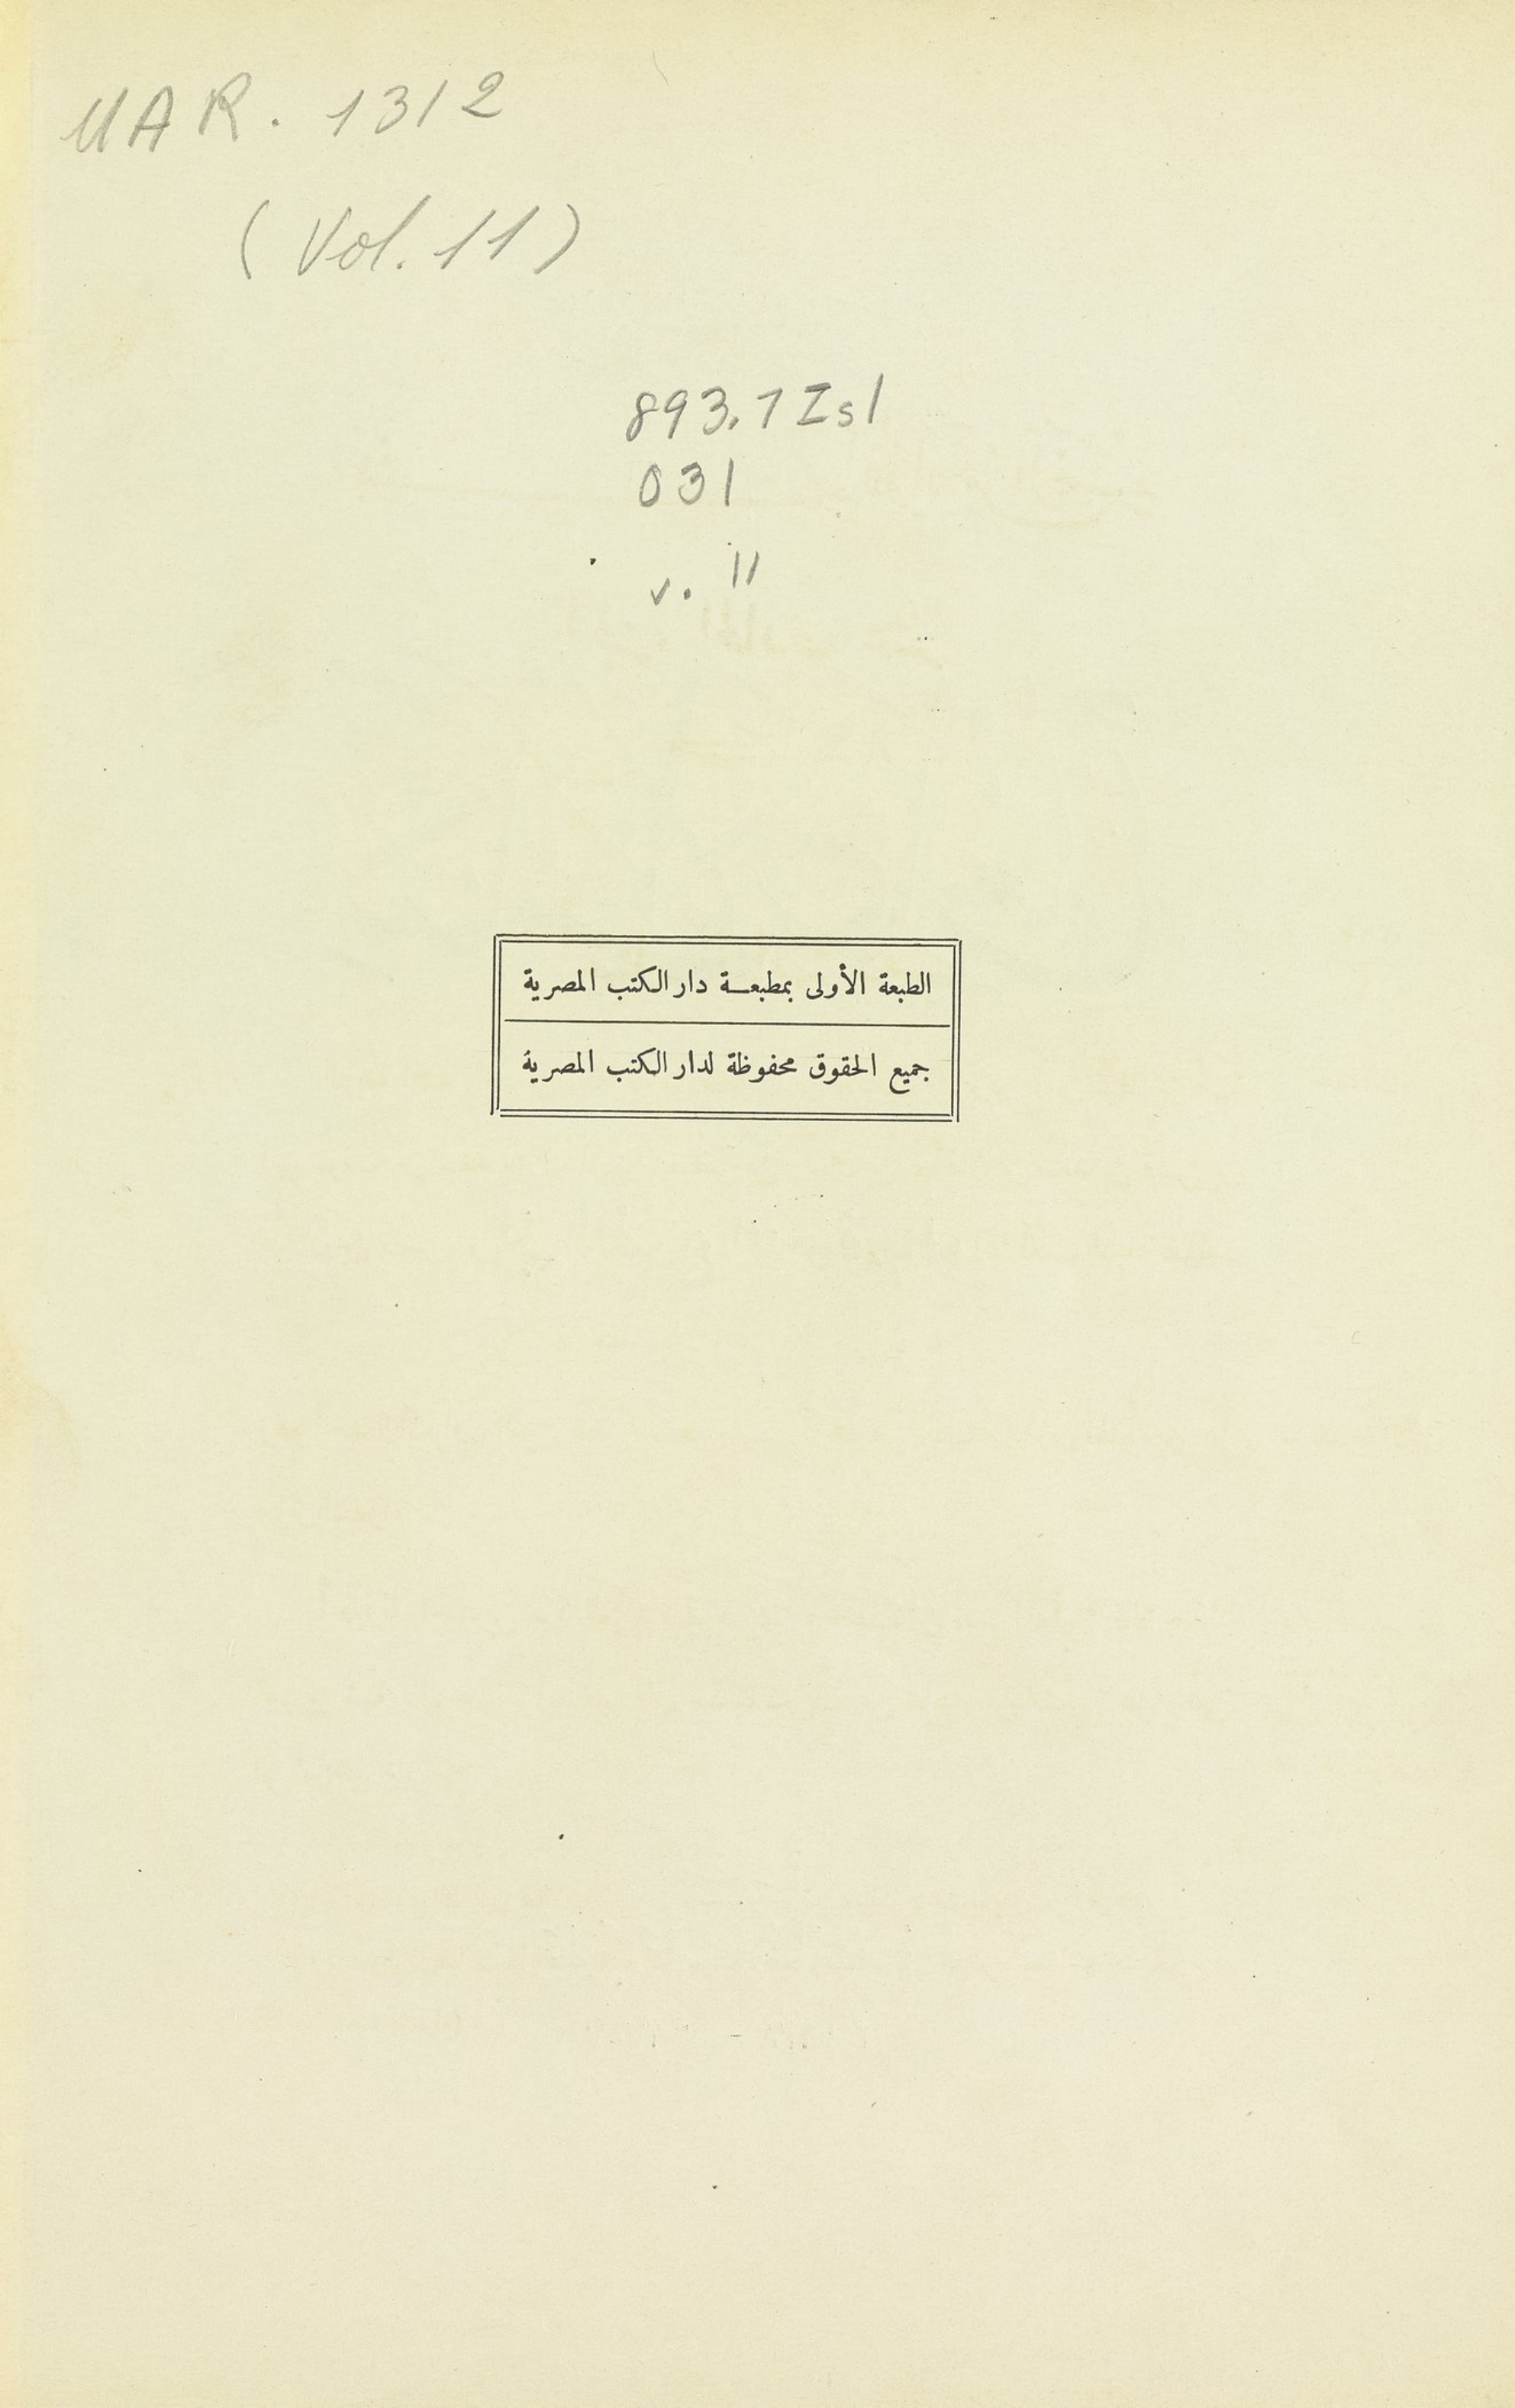 UAR. 1312
(Vol. 11)
893.7 Isl
031
v. 11
الطبعة الأولى بمطبعة دار الكتب المصرية
جميع الحقوق محفوظة لدار الكتب المصرية